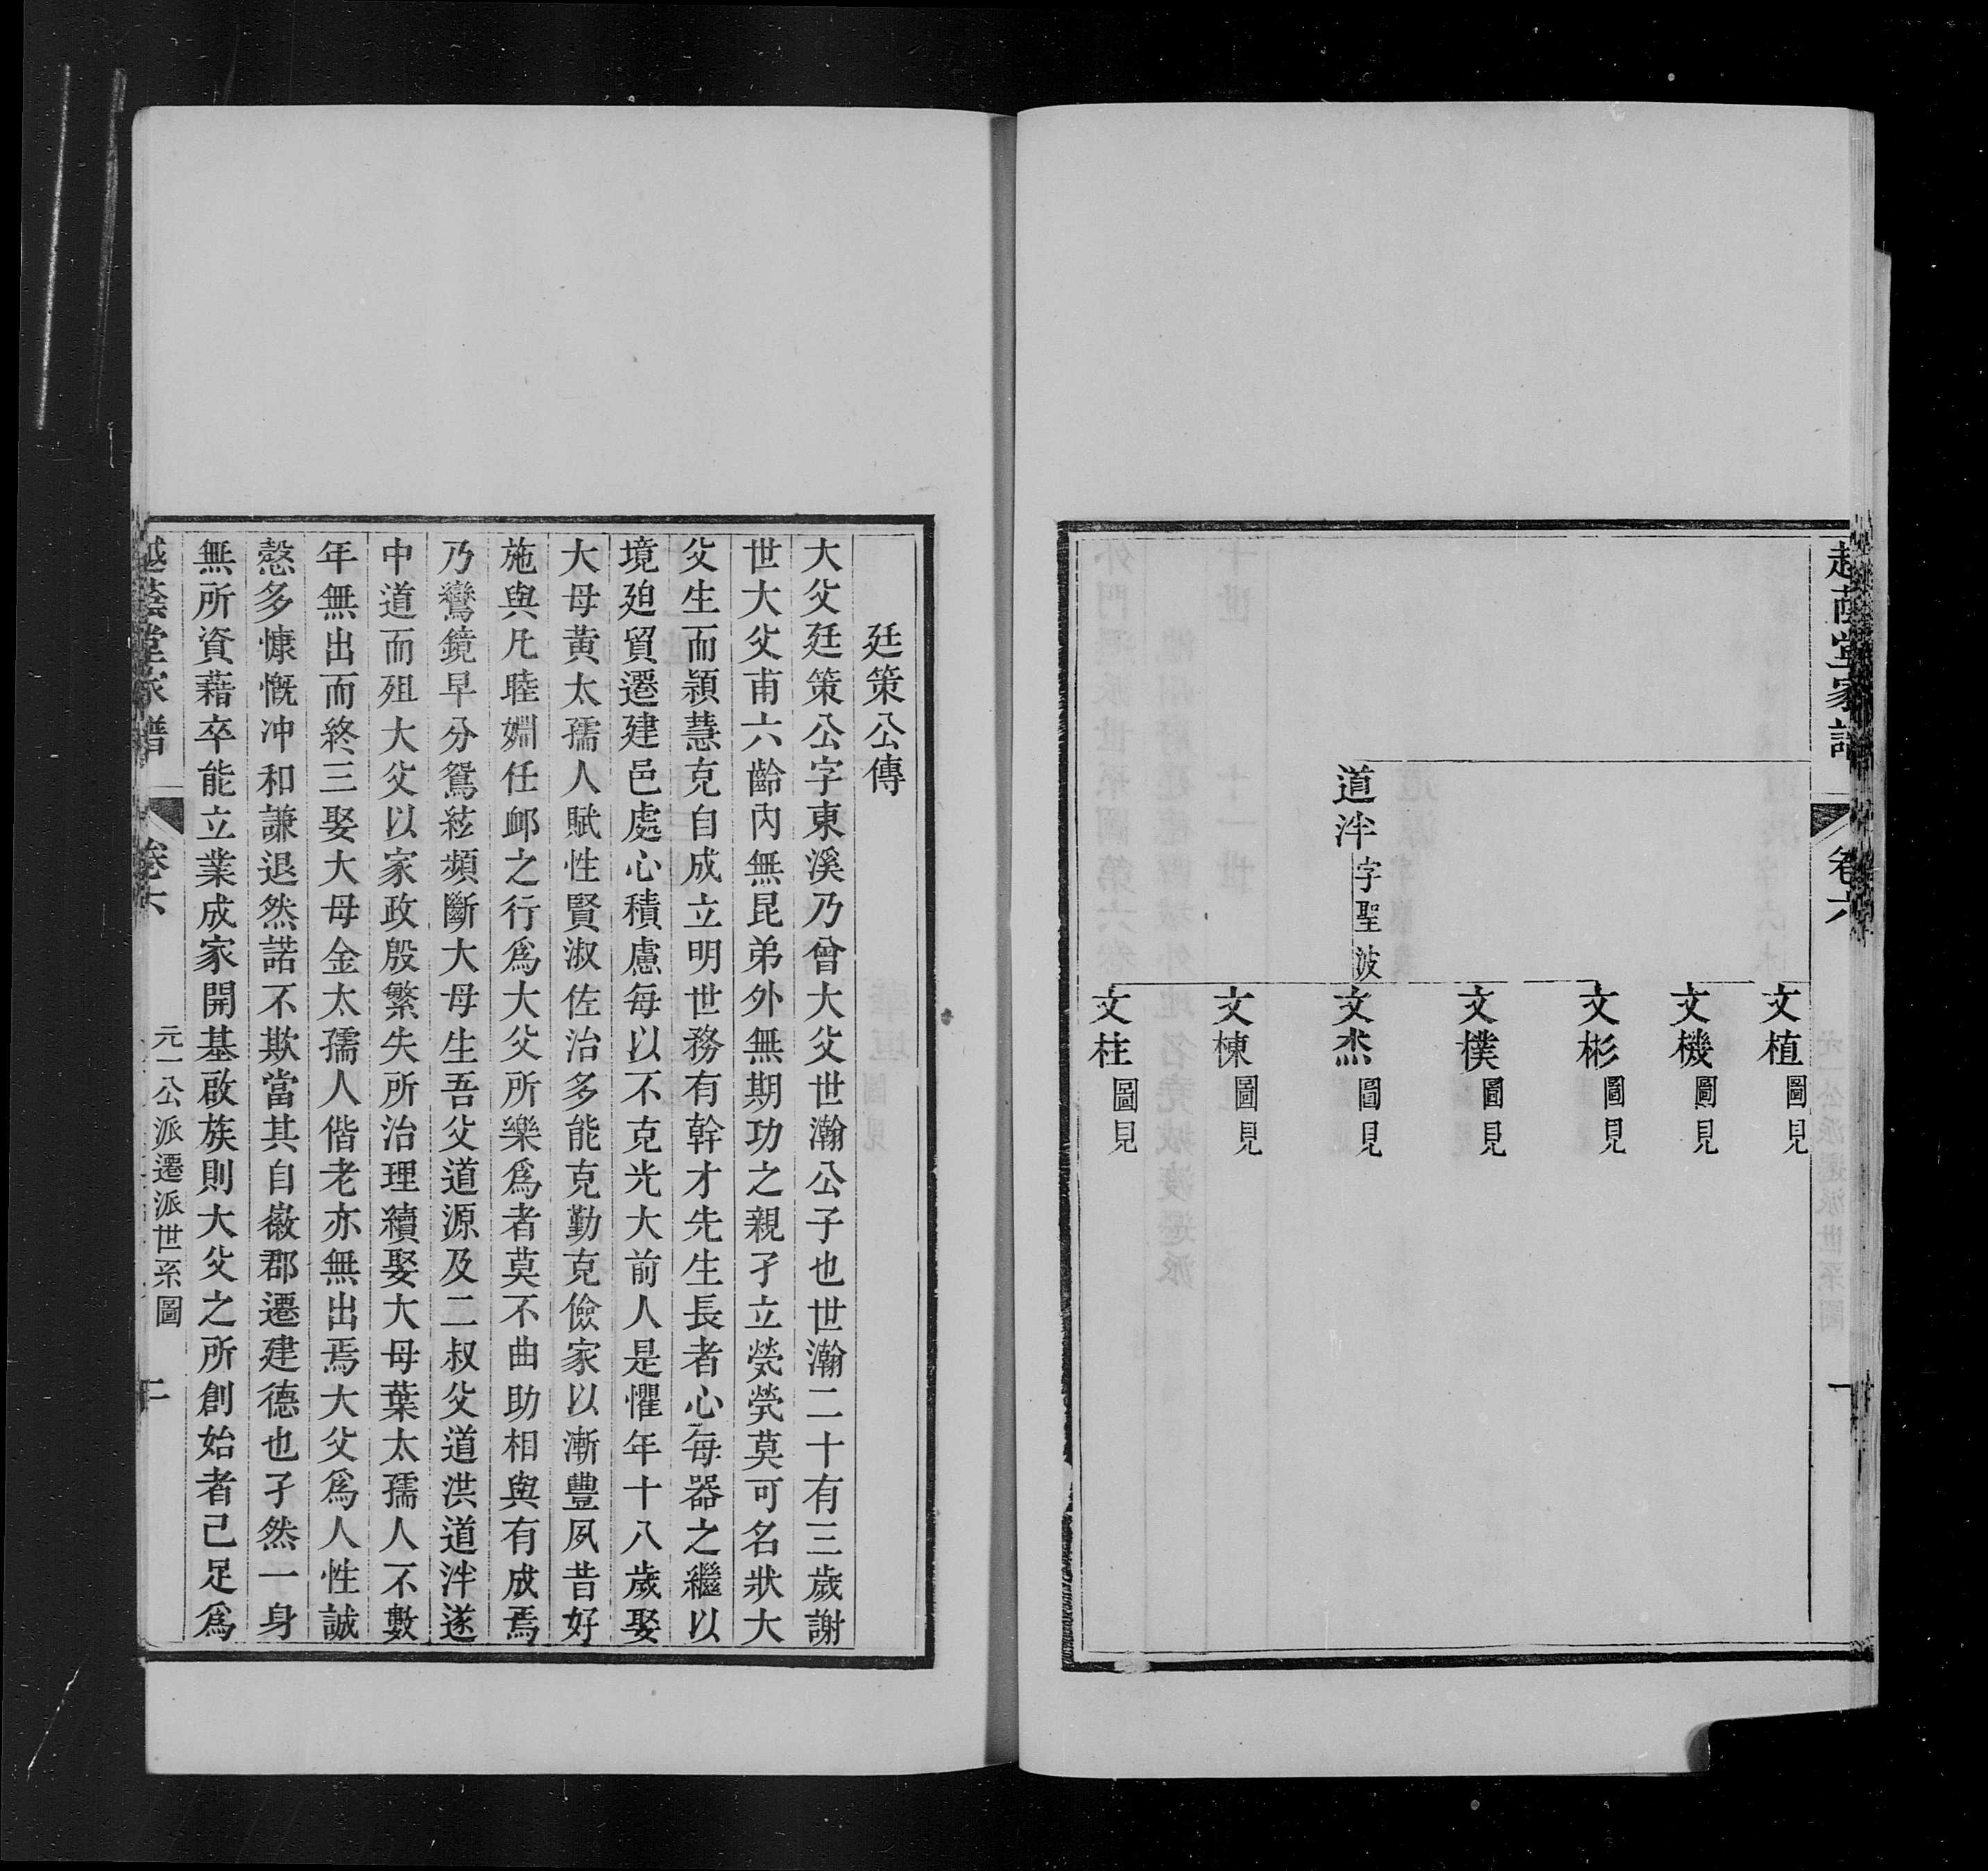 卷六
道泮字聖波
文植圖見
文機圖見
文彬圖見
文樸圖見
文杰圖見
文棟圖見
文柱圖見
廷策公傳
大父廷策公字東溪乃曾大父世瀚公子也世瀚二十有三歲謝
世大父甫六齡內無昆弟外無期功之親孑立煢煢莫可名狀大
父生而穎慧克自成立明世務有幹才先生長者心每器之繼以
境廹貿遷建邑處心積慮每以不克光大前人是懼年十八歲娶
大母黃太孺人賦性賢淑佐治多能克勤克儉家以漸豐夙昔好
施與凡睦婣任䘏之行爲大父所樂爲者莫不曲助相與有成焉
乃鸞鏡早分鴛絃頻斷大母生吾父道源及二叔父道洪道泮遂
中道而殂大父以家政殷繁失所治理續娶大母葉太孺人不數
年無出而終三娶大母金太孺人偕老亦無出焉大父爲人性誠
慤多慷慨冲和謙退然諾不欺當其自徽郡遷建德也孑然一身
無所資藉卒能立業成家開基啟族則大父之所創始者已足爲
堂家譜
卷六
元一公派遷派世系圖